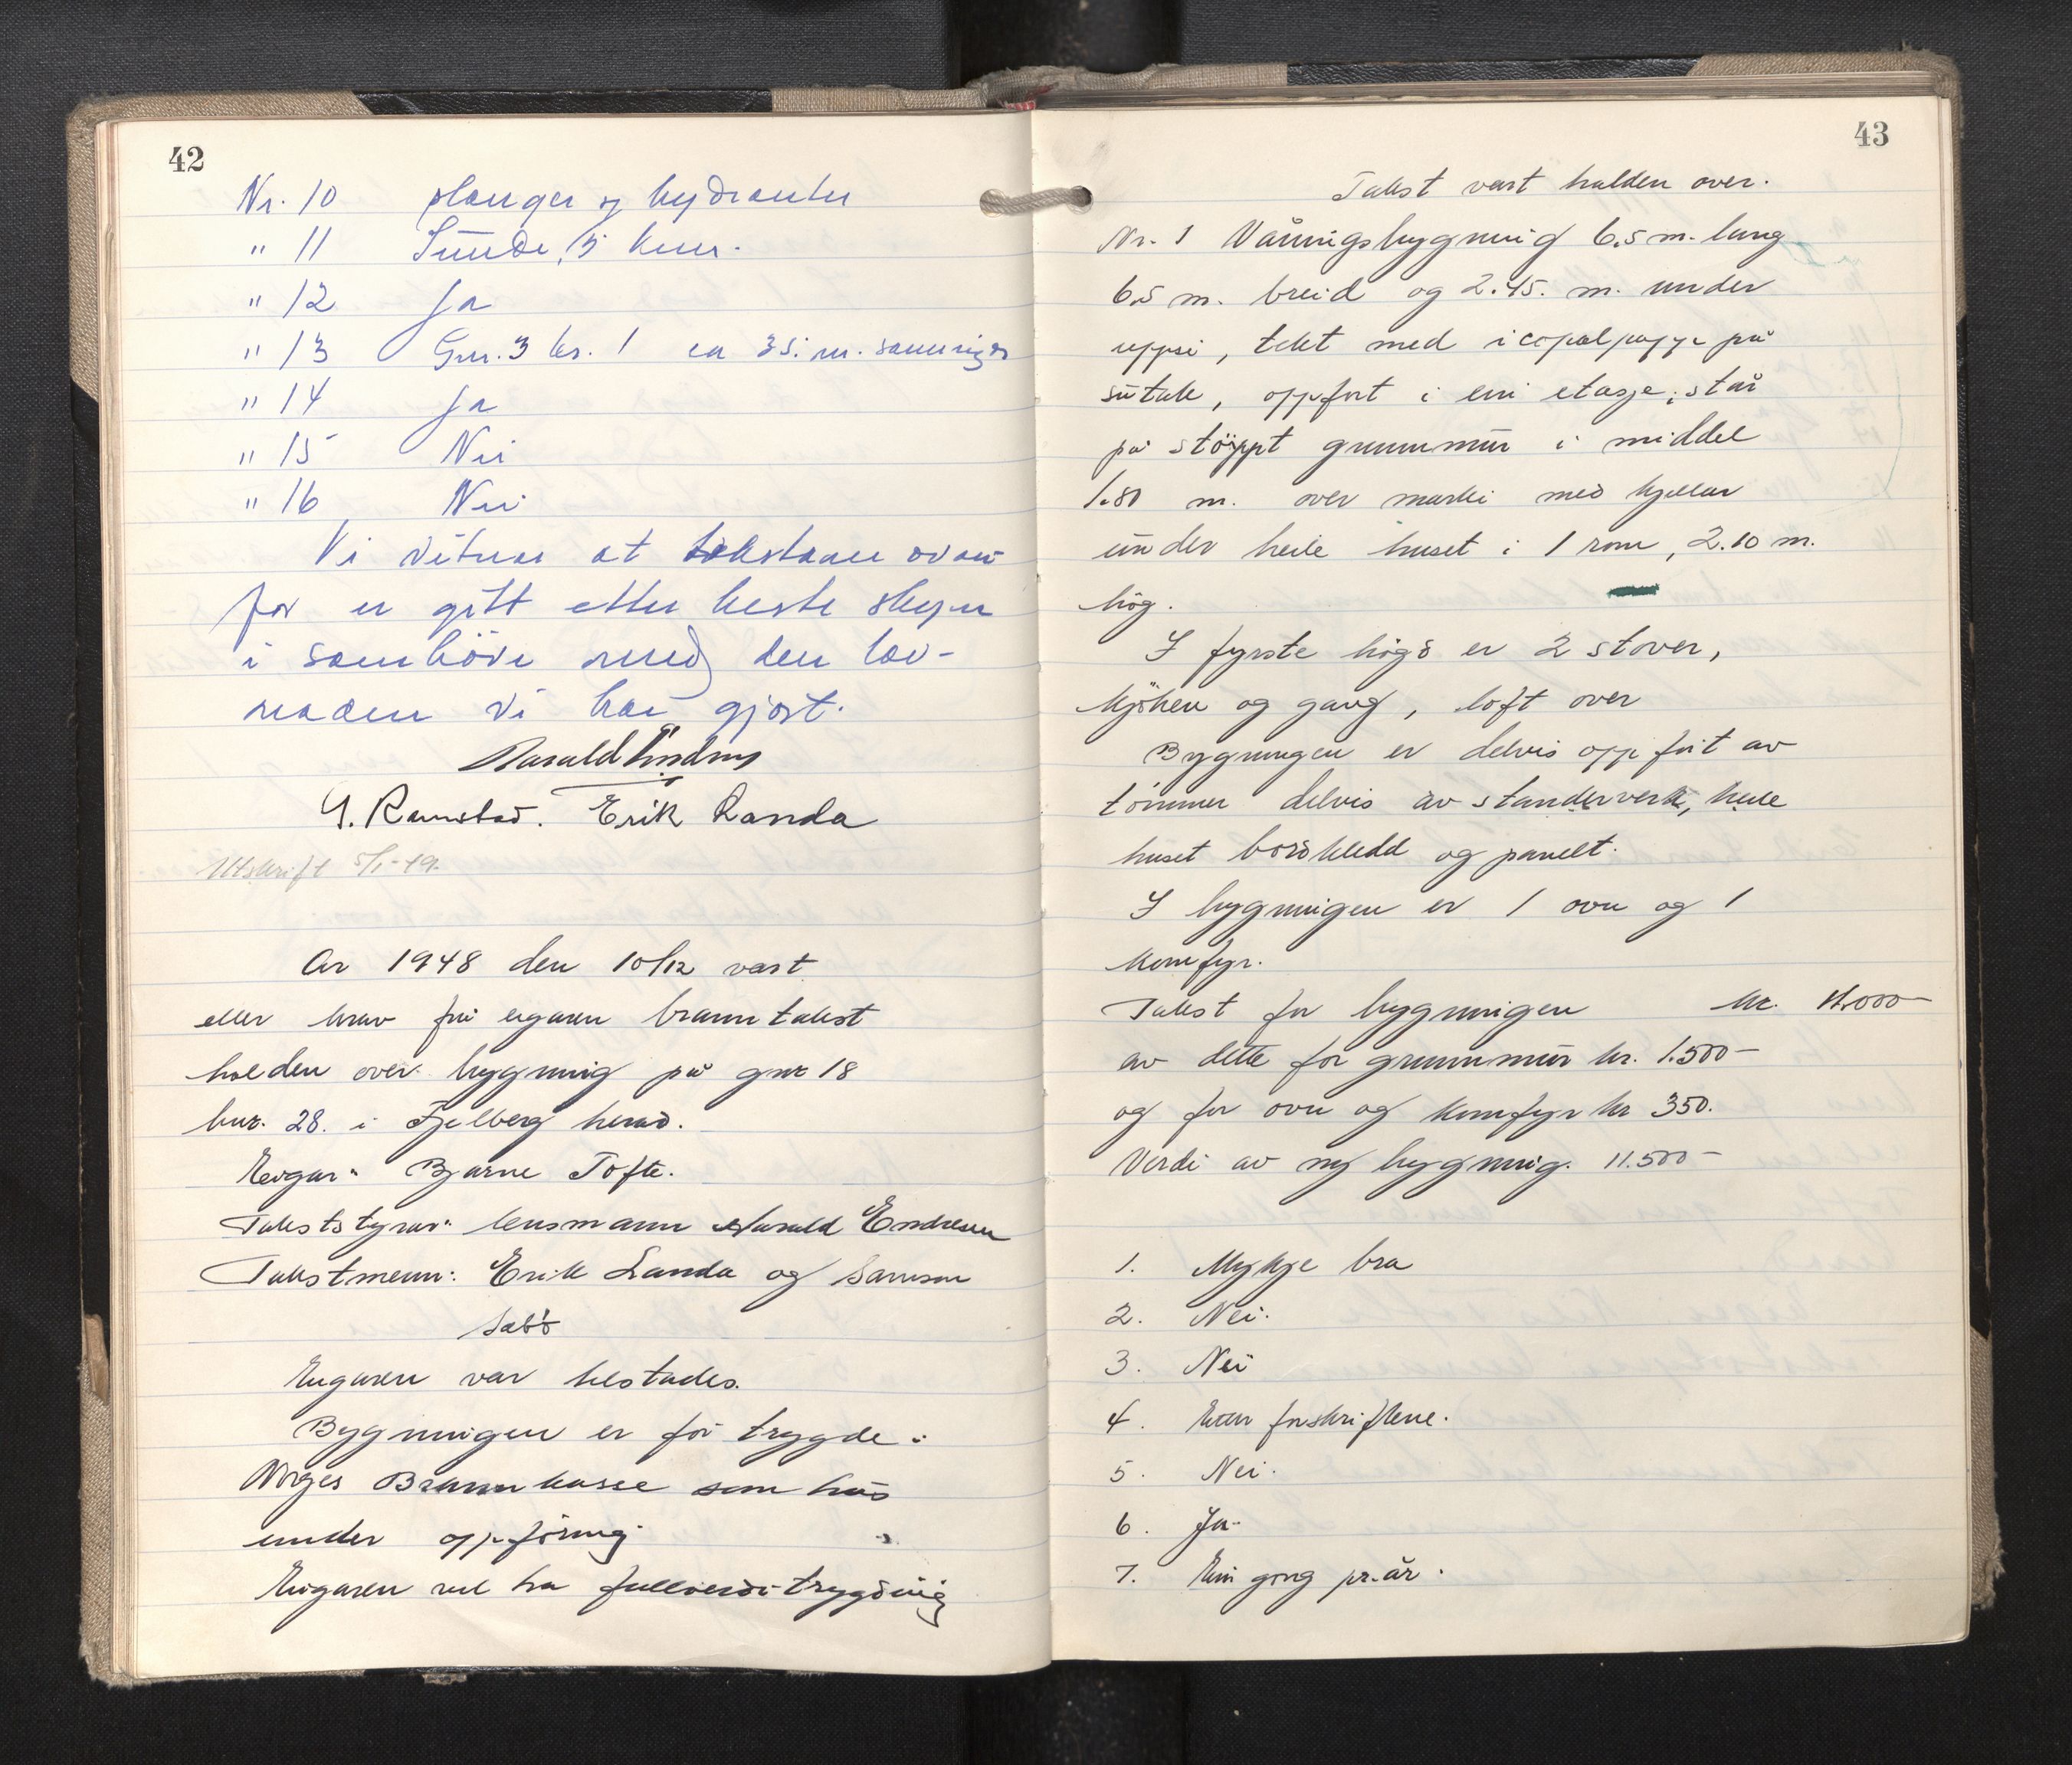 42
Nr. 10 slanger og hydranter
" 11 Sunde, 5 km.
" 12 Ja
" 13 Gnr. 3 br. 1 ca 35. m.
" 14 Ja
" 15 Nei
" 16 Nei
Vi vitnar at takstane ovan-
for er gitt etter beste skyn
i samhöve med den lov-
naden vi har gjort.
Harald Endresen
G. Ramstad. Erik Landa
Utskrift 5/1-49.
Ar 1948 den 10/12 vart
etter krav frå eigaren branntakst
halden over bygning på gnr 18
bnr. 28. i Fjelberg herad.
Eigar: Bjarne Tofte.
Takststyrar: lensmann Harald Endresen
Takstmenn: Erik Landa og Samson
Sæbö
Eigaren var tilstades.
Bygningen er för trygde i
Norges Brannkasse som hus
under oppföring.
Eigaren vil ha fullverdi-trygding
43
Takst vart halden over.
Nr. 1 Våningsbygning 6,5 m. lang
6,5 m. breid og 2.45. m. under
uppsi, tekt med icopalpapp på
sutak, oppfört i ein etasje, står
på stöppt grunnmur i middel
1.80 m. over marki med kjellar
under heile huset i 1 rom, 2.10 m.
hög.
I fyrste högd er 2 stover,
kjöken og gang, loft over
Bygningen er delvis oppfört av
tömmer delvis av standerverk, heile
huset bordkledd og panelt.
I bygningen er 1 ovn og 1
komfyr.
Takst for bygningen kr. 11.000-
av dette for grunnmur kr. 1.500-
og for ovn og komfyr kr 350.
Verdi av ny bygning. 11.500-
1. Mykje bra
2. Nei.
3. Nei
4. Etter forskriftene.
5. Nei.
6. Ja.
7. Ein gong pr. år.